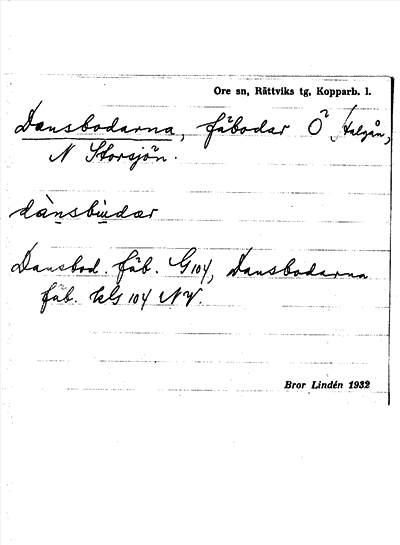 Ore sn, Rättviks tg, Kopparb. l.
Dansbodarna, fäbodar Ö Stalgån,
N Storsjön.
dànsbudær
Dansbod. fäb. G104, Dansbodarna
fäb. kls 104 NV.
Bror Lindén 1932